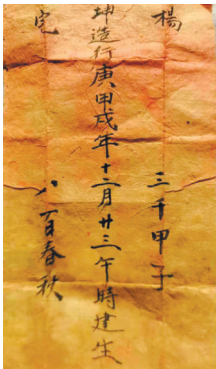 楊　三千甲子
坤造行庚甲戌年十二月廿三午時建生
宅　八百春秋